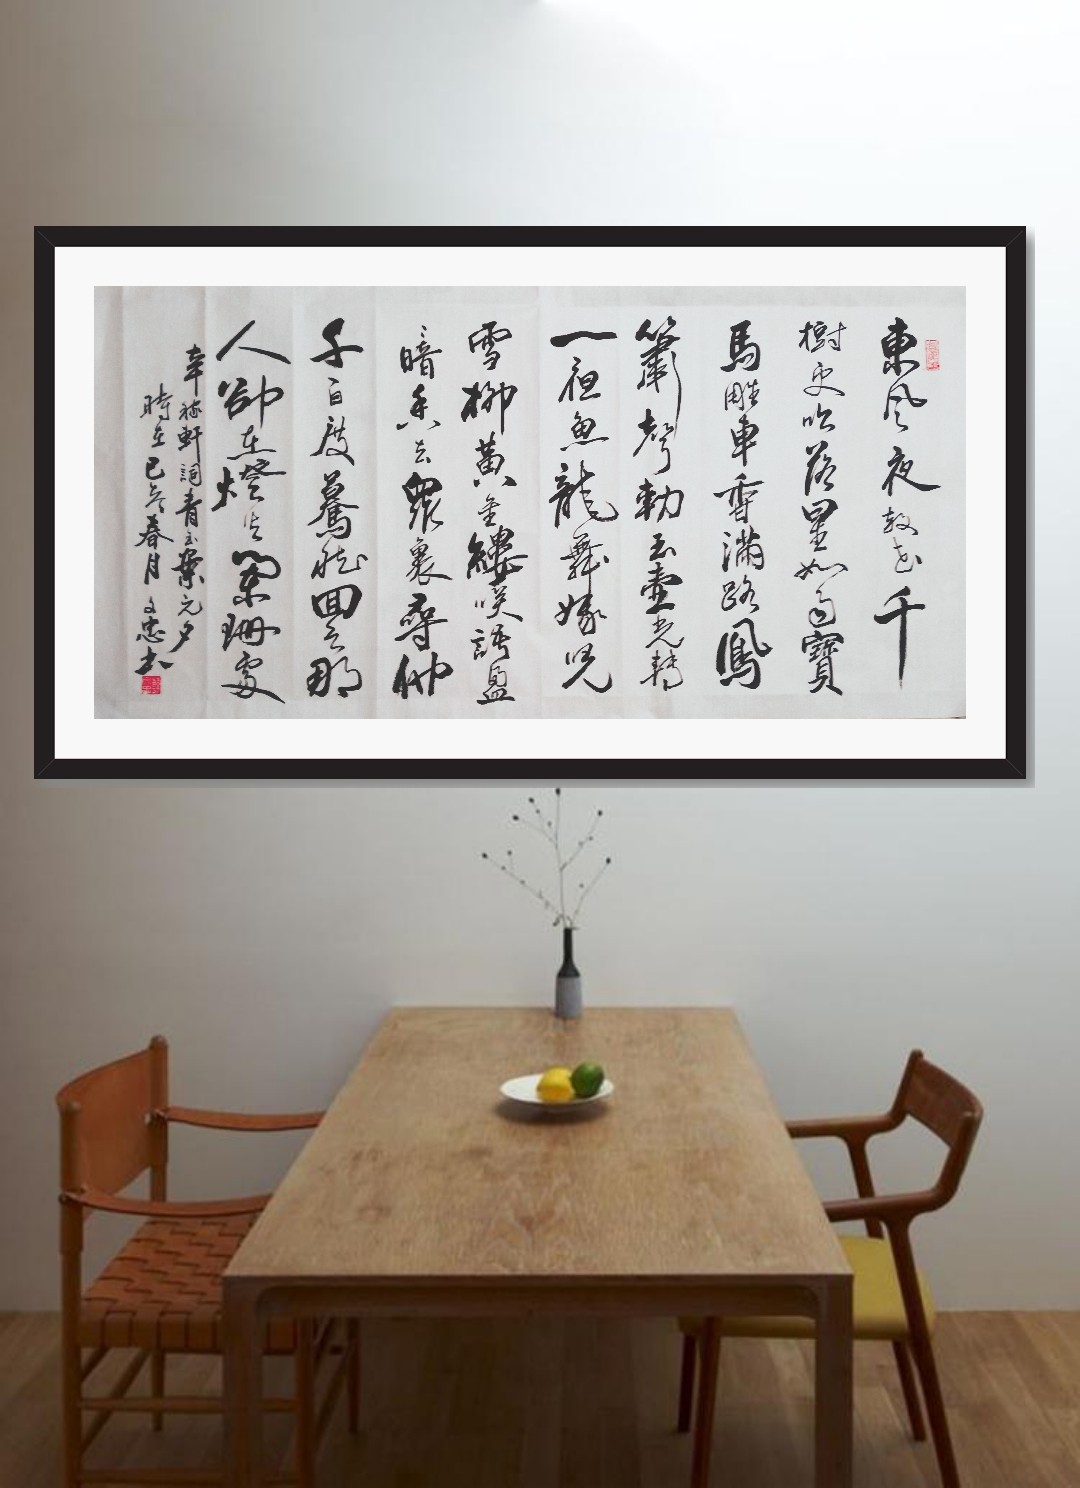 東風夜放花千
樹更吹落星如雨寶
馬雕車香滿路鳳
簫聲動玉壺光轉
一夜魚龍舞蛾兒
雪柳黃金縷笑語盈
暗香去眾裏尋他
千百度驀然回首那
人卻在燈火闌珊處
辛稼軒詞青玉案元夕
時在己亥春月文忠書